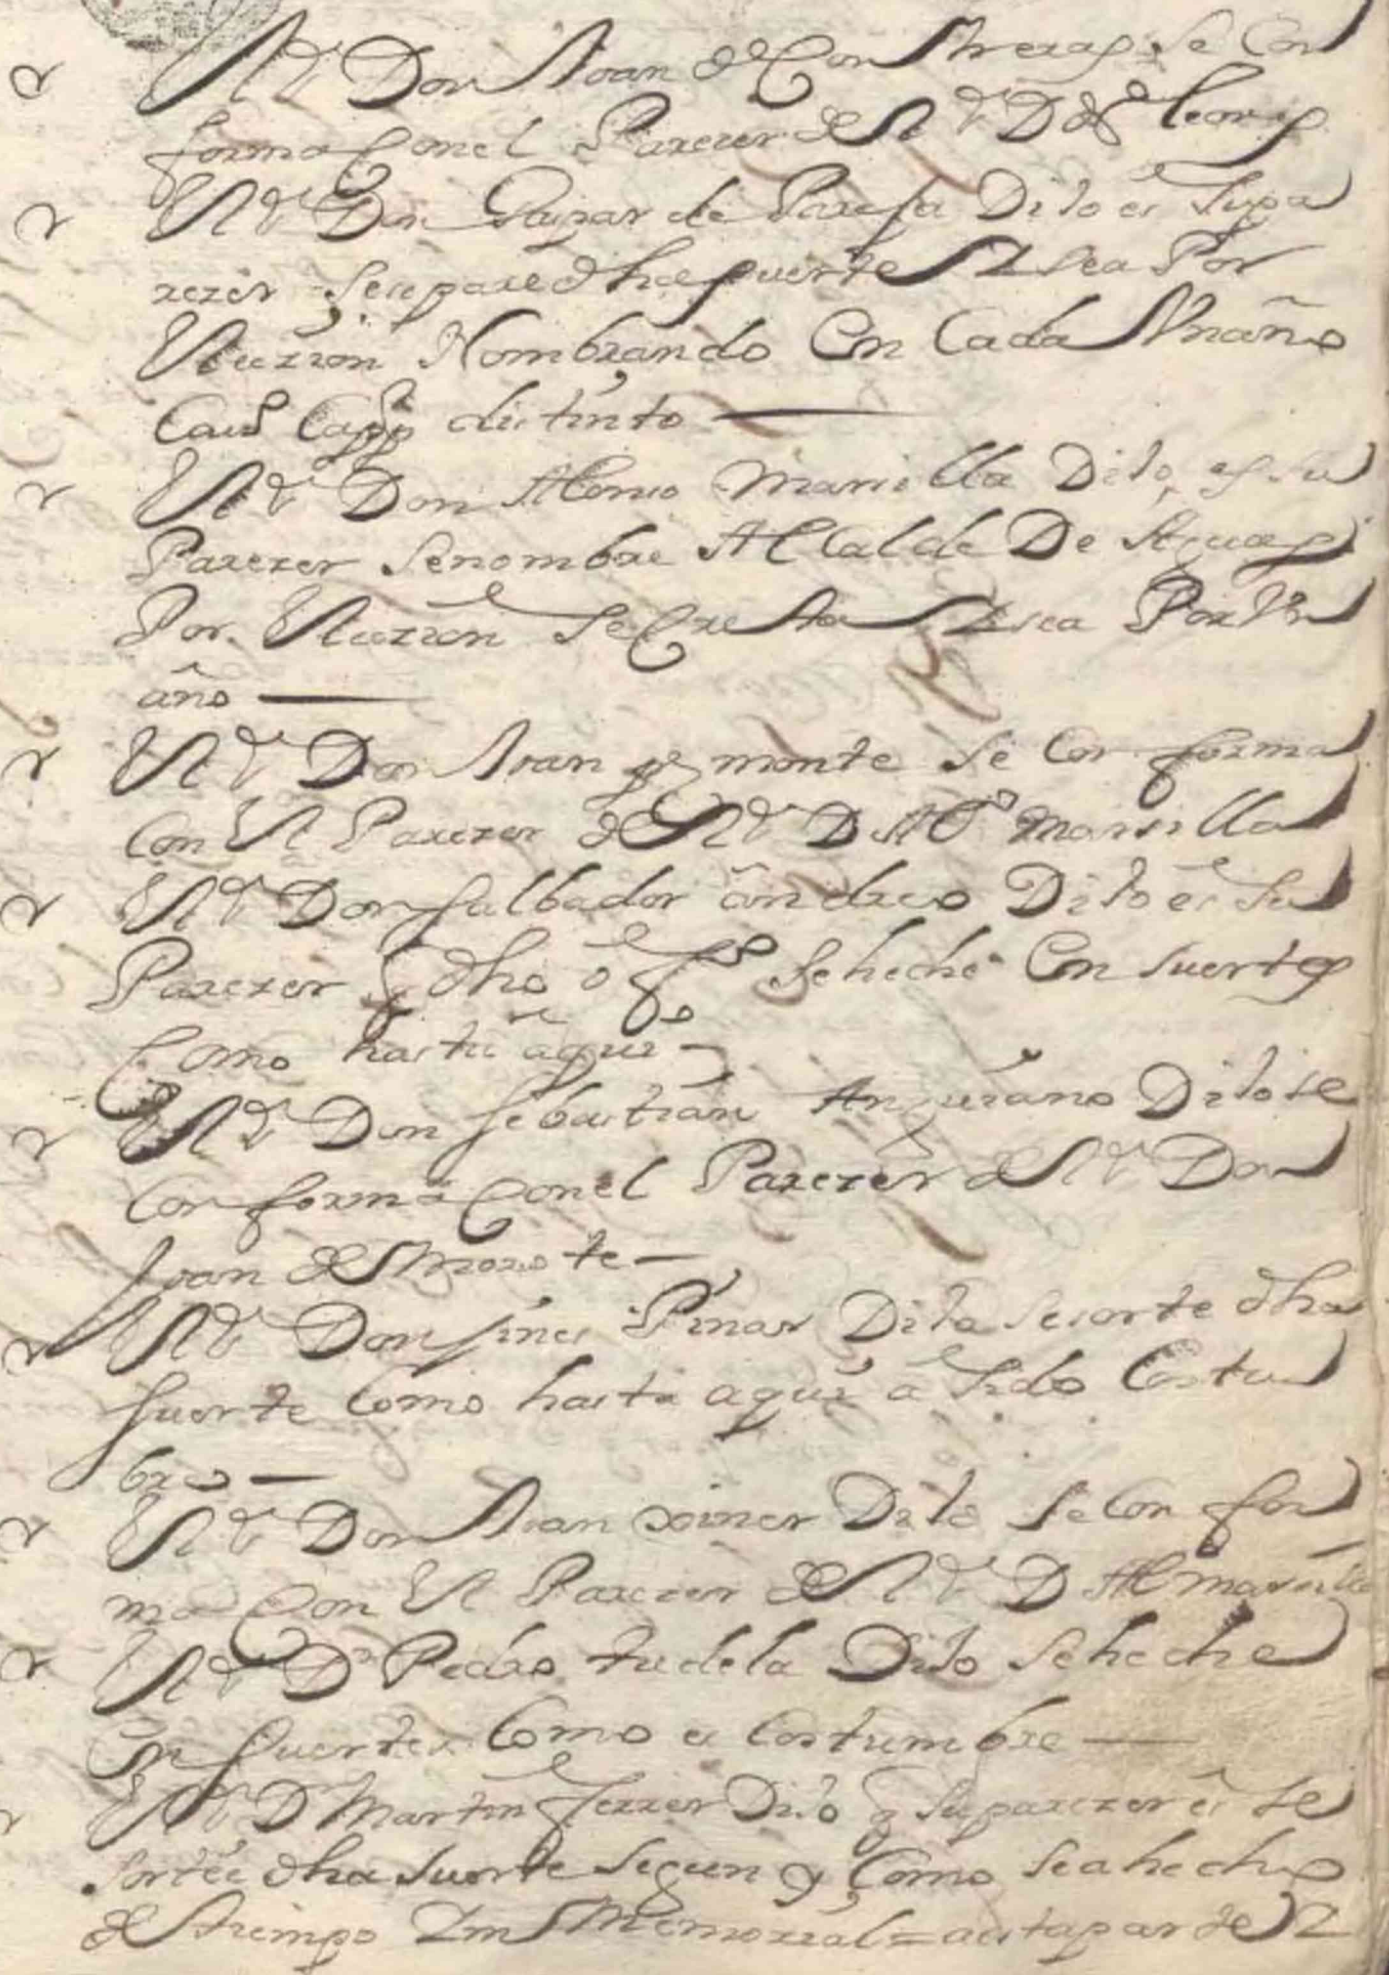 El Sr Don Juan de Contreras Se Con
forma Con el Parezer del Sr D
El Sr Don Gaspar de Pareja Dijo es Supa
rezer se separe dha suerte Y sea Por
Elezzion Nombrando En Cada Un año
Cavo Capp distinto
El Sr Don Alonso Marsilla Dijo es su
Parezer Se nombre Alcalde De Aguas
Por Elezzion Secreta Y sea Por Un
año
El Sr Don Juan monte Se Con forma
Con El Parezer del Sr D Alo Marsilla
El Sr Don Salbador andreo Dijo es Su
Parezer q dho ofo Se heche En Suertes
Como hasta aqui
El Sr Don Sebastian Anguiano Dijo se
Con forma Con el Parezer del Sr Don
Juan de Morote
El Sr Don Jines Pinar Dijo se sorte dha
Suerte Como hasta aqui a Sido Costum
bre
El Sr Don Juan Dijo Se Con for
ma Con El Parezer del Sr D Al marsilla
El Sr Dn Pedro tudela Dijo Se heche
En Suertes Como es Costumbre
El Sr D Martin ferrer Dijo q Su parezer es se
sortee dha Suerte Segun y Como Se a hecho
de tiempo Ymmemorial = a esta parte Y